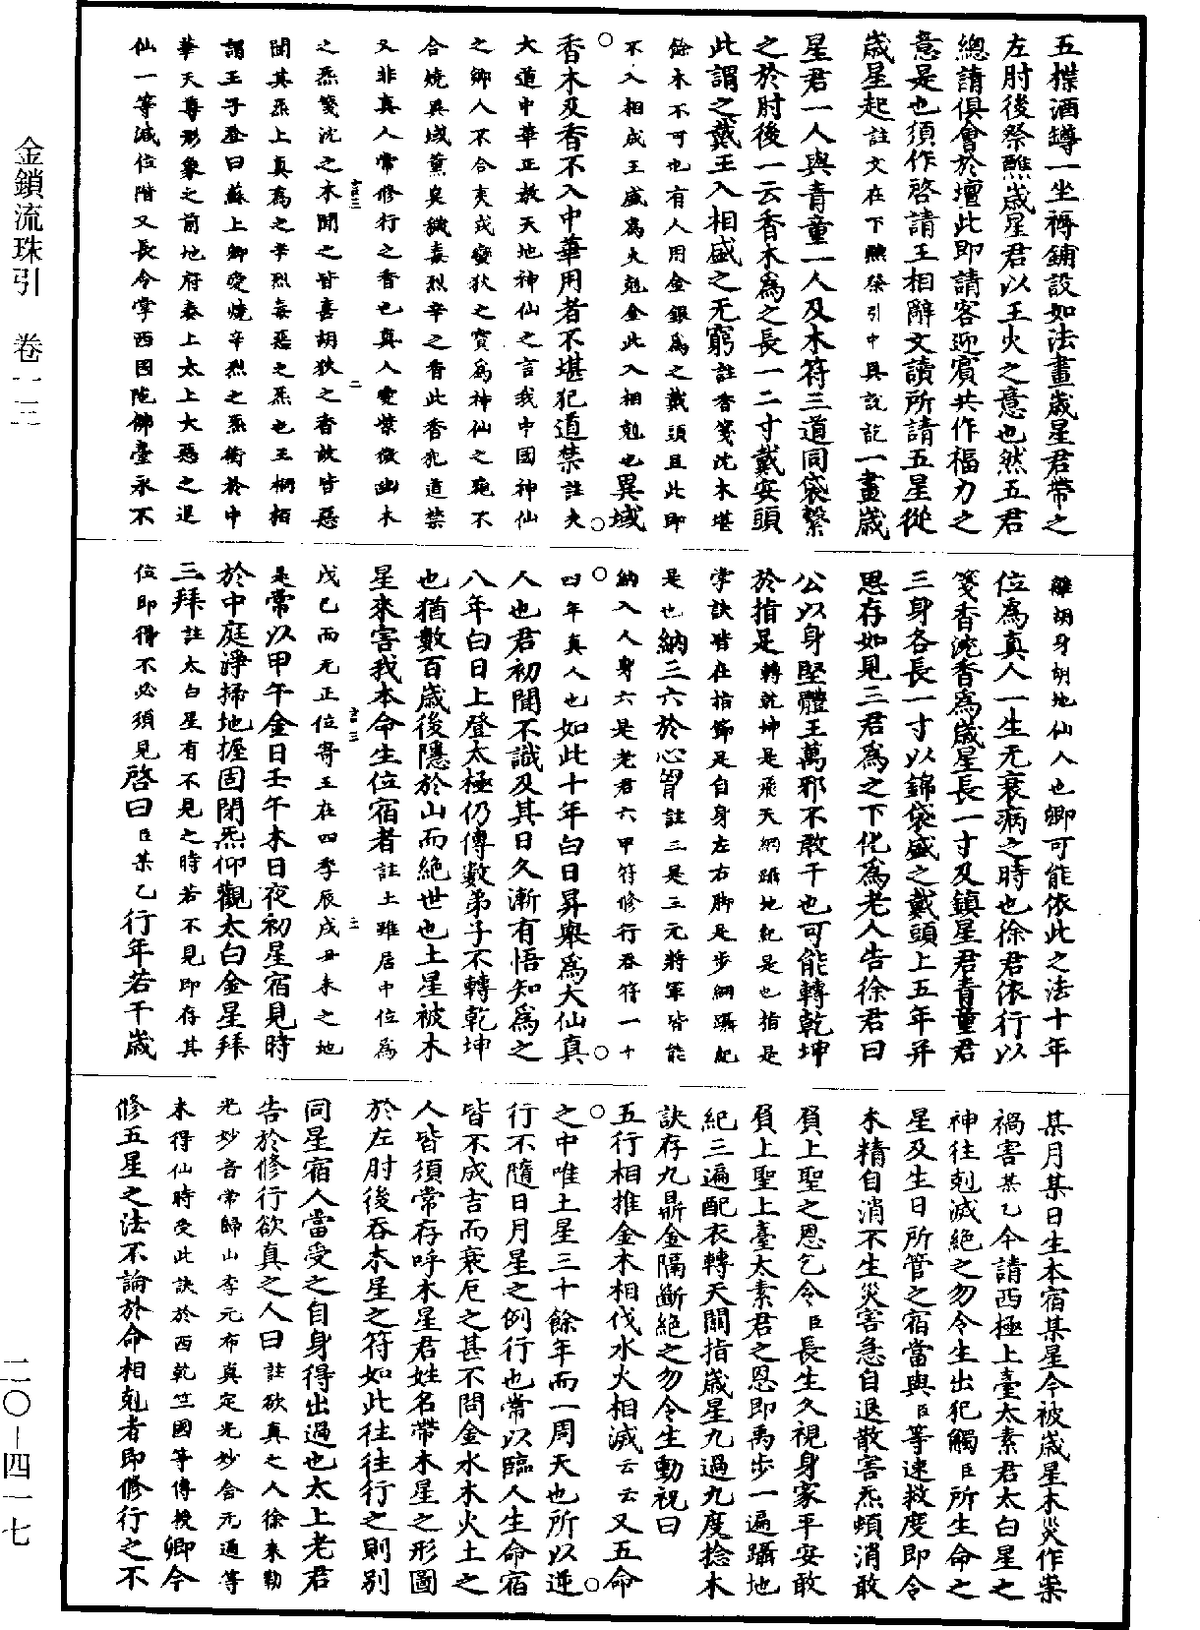 金鎖流珠引　卷二二
二〇－四一七
五楪酒罇一坐褥鋪設如法畫歲星君帶之
左肘後祭醮歲星君以王火之意也然五君
總請俱會於壇此即請客迎賓共作福力之
意是也須作啓請王相辭文讀所請五星從
歲星起註文在下醮祭引中具說訖一畫歲
星君一人與青童一人及木符三道同袋繫
之於肘後一云香木為之長一二寸戴安頭
此謂之戴王入相盛之无窮註香箋沈木堪
餘木不可也有人用金銀為之戴頭且此即
不入相成王盛為火剋金此入相剋也異域
香木及香不入中華用者不堪犯道禁註夫
大道中華正教天地神仙之言我中國神仙
之鄉人不合夷戎蠻狄之寶為神仙之施不
合燒異域薰臭穢毒烈辛之香此香犯道禁
又非真人常修行之香也真人愛柴微幽木
之炁箋沈之木聞之皆喜胡狄之香故皆惡
聞其炁上真為之辛烈毒惡之炁也王桐栢
謂王子登曰蘇上卿愛燒辛烈之炁衝於中
華天尊形象之前地府奏上太上大惡之退
仙一等減位階又長令掌西國陀佛臺永不
離胡身胡地仙人也卿可能依此之法十年
位為真人一生无衰病之時也徐君依行以
箋香沈香為歲星長一寸及鎮星君青童君
三身各長一寸以錦袋盛之戴頭上五年并
思存如見三君為之下化為老人告徐君曰
公以身堅體王萬邪不敢干也可能轉乾坤
於指足轉乾坤是飛天網躡地紀是也指是
掌訣皆在指節足自身左右脚是步網躡紀
是也納三六於心胷註三是三元將軍皆能
納入人身六是老君六甲符修行吞符一十
四年真人也如此十年白日昇舉為大仙真
人也君初聞不識及其日久漸有悟知為之
八年白日上登太極仍傳數弟子不轉乾坤
也猶數百歲後隱於山而絕世也土星被木
星來害我本命生位宿者註土雖居中位為
戊己而无正位寄王在四季辰戌丑未之地
是常以甲午金日壬午木日夜初星宿見時
於中庭淨掃地握固閉炁仰觀太白金星拜
三拜註太白星有不見之時若不見即存其
位即得不必須見啓曰臣某乙行年若干歲
某月某日生本宿某星今被歲星木災作祟
禍害某乙今請西極上臺太素君太白星之
神往剋滅絕之勿令生出犯觸臣所生命之
星及生日所管之宿當與臣等速救度即令
木精自消不生災害急自退散害炁頓消敢
負上聖之恩乞令臣長生久視身家平安敢
負上聖上臺太素君之恩即禹步一遍躡地
紀三遍配衣轉天關指歲星九過九度捻木
訣存九鼎金隔斷絕之勿令生動祝曰
五行相推金木相伐水火相滅云云又五命
之中唯土星三十餘年而一周天也所以逆
行不隨日月星之例行也常以臨人生命宿
皆不成吉而衰厄之甚不問金水木火土之
人皆須常存呼木星君姓名帶木星之形圖
於左肘後吞木星之符如此往往行之則別
同星宿人當受之自身得出過也太上老君
告於修行欲真之人曰註欲真之人徐來勒
光妙音常歸山李元布真定光妙合元通等
未得仙時受此訣於西乾竺國等傳授卿今
修五星之法不論於命相剋者即修行之不